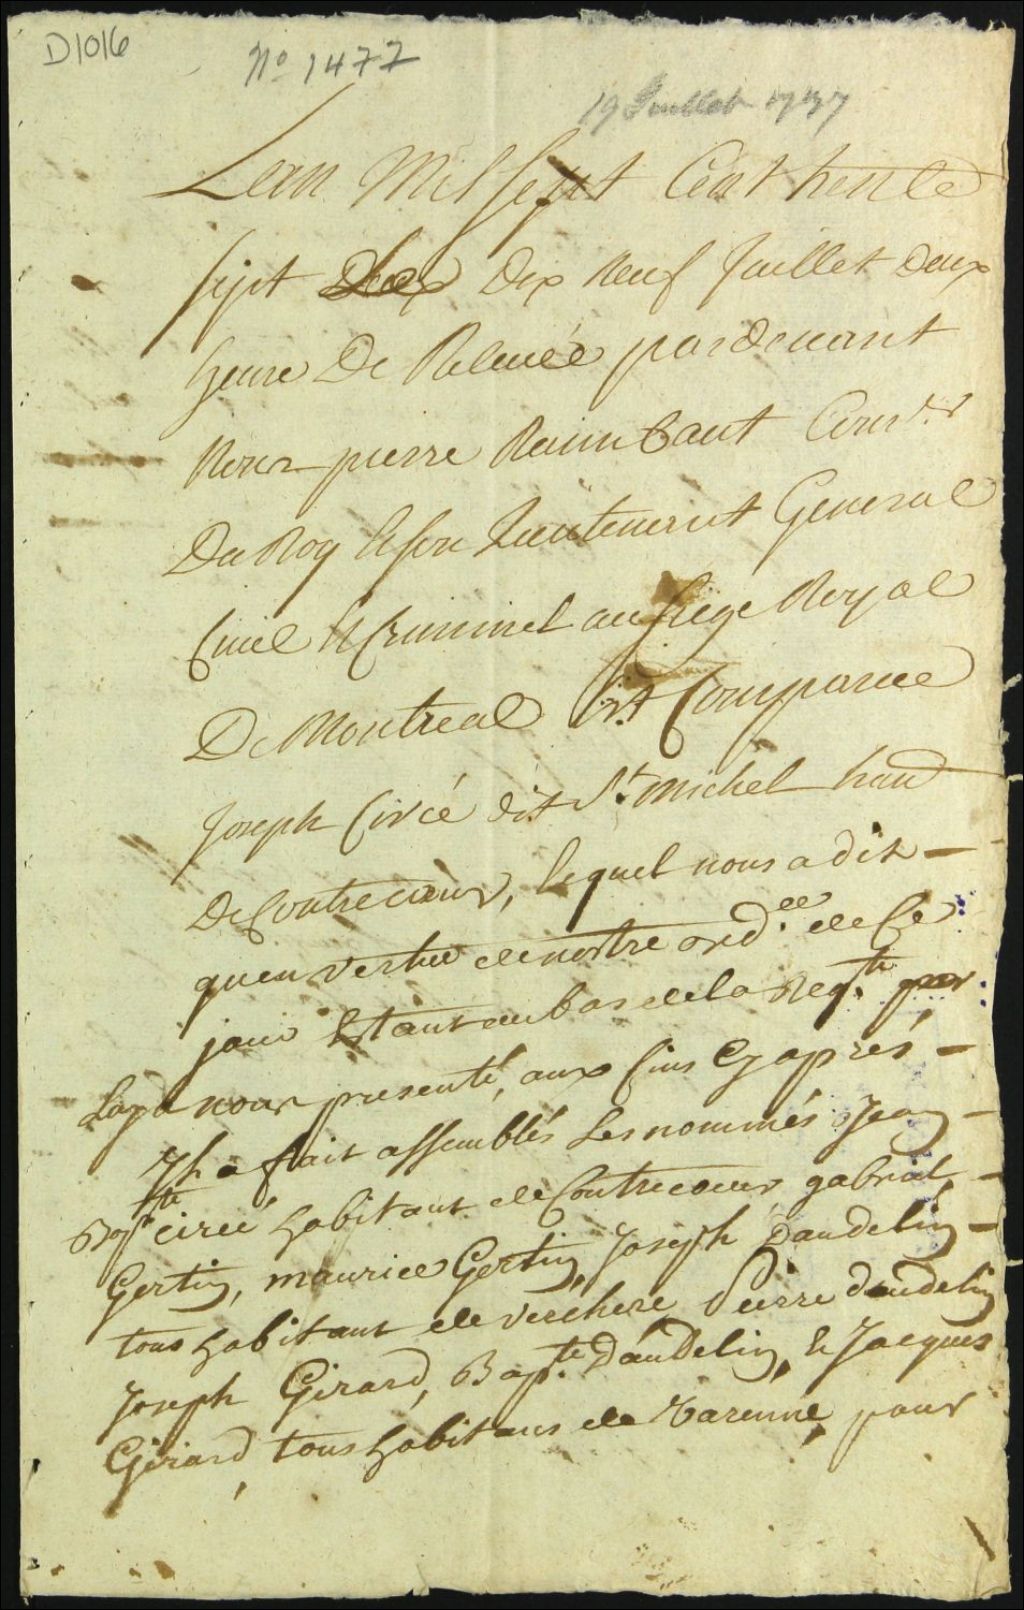 D1016
No 1477
19 Juillet 1737
Lan Mil Sept Cent trente
sept Dix Neuf Juillet deux
heure De Relevée pardevant
Nous pierre Raimbaut Consr.
Du Roy & son Lieutenant General
Civil & Criminel au siege Royal
De Montreal Est Comparue
Joseph Circé dit St. Michel hant
De Contrecoeur, lequel nous a dit
quen vertue de nostre ord.ce de Ce
jour Estant au bas de la Reqte. par
Luy a nous presenté, aux fins Cy aprés
Il a fait assemblés Les nommés Jean
Bapte circé habitant de Contrecoeur gabriel
Gertin, maurice Gertin, Joseph Dandelin
tous habitant de verchere Pierre dandelin
Joseph Girard, Bapte. Dandelin, & Jacques
Girard, tous habitans de Varenne, pour